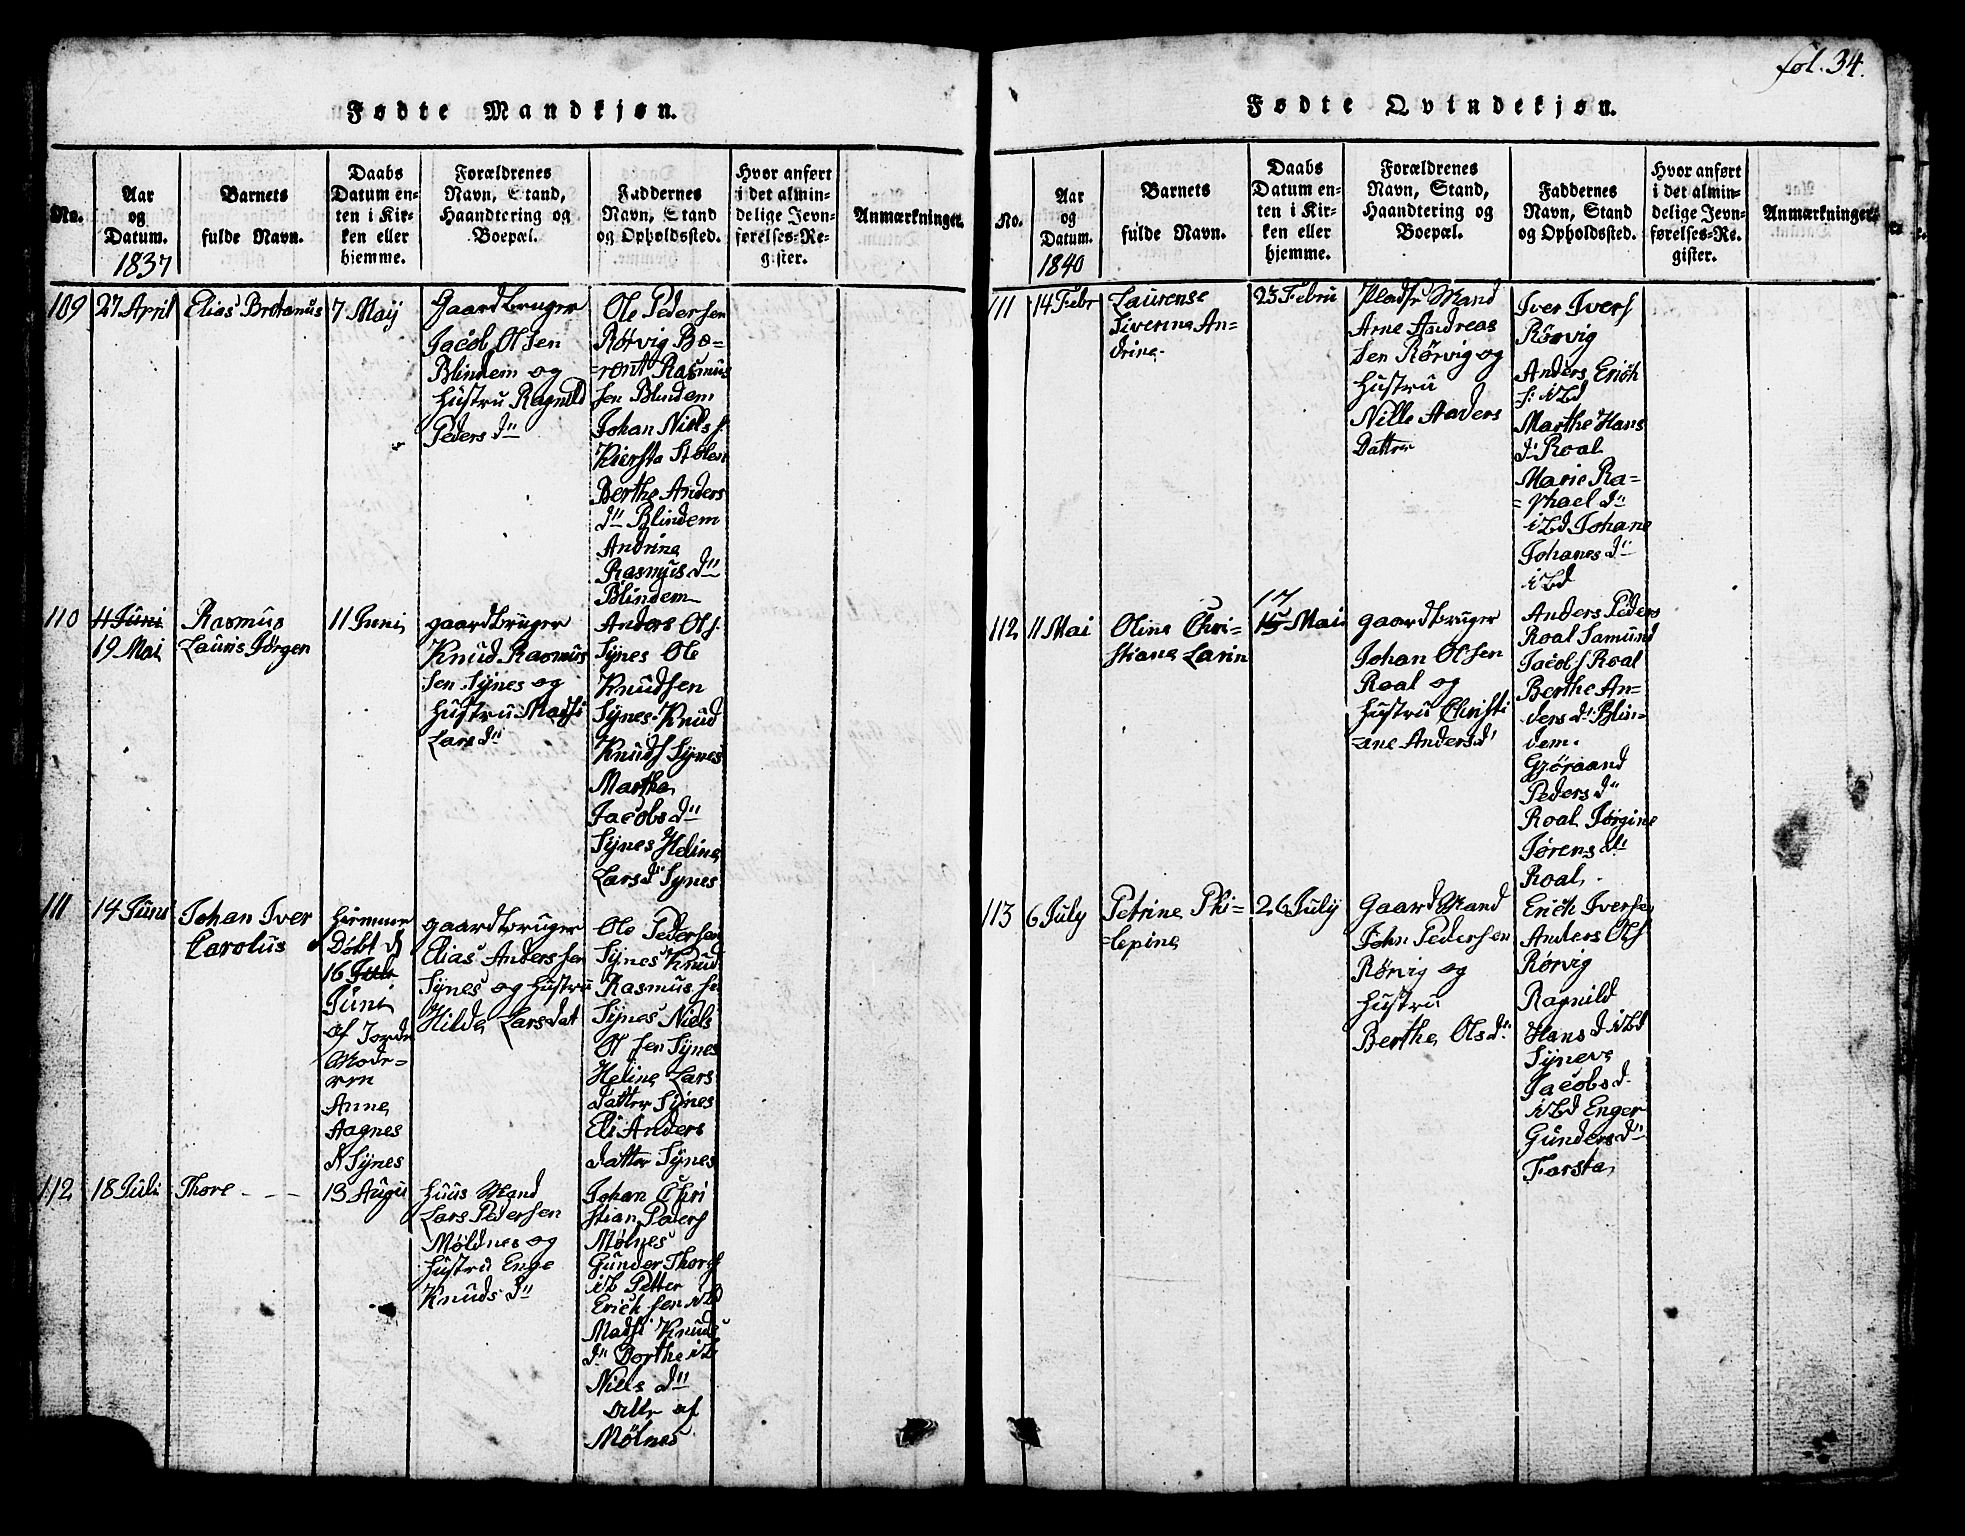 fol. 34.
Fødte Mandkjøn.
No.
Aar
og
Datum.
1837
Barnets
fulde Navn.
Daabs
Datum en-
ten i Kir-
ken eller
hjemme.
Forældrenes
Navn, Stand,
Haandtering og
Boepæl.
Faddernes
Navn, Stand
og Opholdssted.
Hvor anført
i det almin-
delige Jevn-
førelses-Re-
gister.
Anmærkninger.
109
27 April
Elias Brotanus
7 Maij
Gaardbruger
Jacob Olsen
Blindem og
Hustru Ragnild
Peders d''
Ole Pedersen
Rörvig Be=
=rent Rasmus
sen Blindem
Johan Niels f.
Kiersta Stölen
Berthe Anders
d'' Blindem
Andrine
Rasmus d''
Blindem
110
11 Juni
19 Mai
Rasmus
Lauris Jörgen
11 Juni
gaardbruger
Knud Rasmus
sen Synes og
Hustru Madsi
Lars d''
Anders Ols.
Synes Ole
Knudsen
Synes Knud
Knuds Synes
Marthe
Jacobs d''
Synes Heline
Lars d'' Synes
111
14 Juni
Johan Iver
Carolus
Hiemme
Döbt d
16
Juni
af Jorde
Moder=
ren
Anne
Aagnes
d Synes
gaardbruger
Elias Anderssen
Synes og Hustru
Hilde Larsdat
Ole Pedersen
Synes Knud
Rasmus sen
Synes Niels
Ol sen Synes
Heline Lars
datter Synes
Eli Anders
datter Synes
112
18 Juli
Thore - - -
13 Augu
Huus Mand
Lars Pedersen
Möldnes og
Hustru Enge
Knuds d''
Johan Chri
stian Peders
Mölnes
Gunder Thors
ib Petter
Erich sen ibd
Madsi Knuds
d'' Dorthe ib
Niels d''
alle af
Mölnes
Fødte Qvindekjøn.
No.
Aar
og
Datum.
1840
Barnets
fulde Navn.
Daabs
Datum en-
ten i Kir-
ken eller
hjemme.
Forældrenes
Navn, Stand,
Haandtering og
Boepæl.
Faddernes
Navn, Stand
og Opholdssted.
Hvor anført
i det almin-
delige Jevn-
førelses-Re-
gister.
Anmærkninger.
111
14 Febr
Laurense
Siverine An=
drine
23 Febru
Plads Mand
Arne Andreas
sen Rörvig og
Hustru
Nille Anders
Datter
Iver Ivers
Rörvig
Anders Erich
s. ibd
Marthe Hans
d. Roal
Marie Ra=
=phael d''
ibd Johane
Johanes d''
ibd
112
11 Mai
Oline Chri=
stiane Larin
17
15 Mai
gaardbruger
Johan Olsen
Roal og
Hustru Christi
=ane Anders d'
Anders Peders
Roal Samund
Jacobs Roal
Berthe An=
ders d. Blin=
dem.
Gjöraand
Peders d''
Roal Jörgine
Jörens d''
Roal.
113
6 July
Petrine Phi=
=lepine
26 July
Gaard Mand
John Pedersen
Rörvig og
Hustru
Berthe Ols d''
Erich Iversen
Anders Ols
Rörvig
Ragnild
Hans d ibd
Syneve
Jacobs d.
ibd Enger
Gunders d''
Farsta